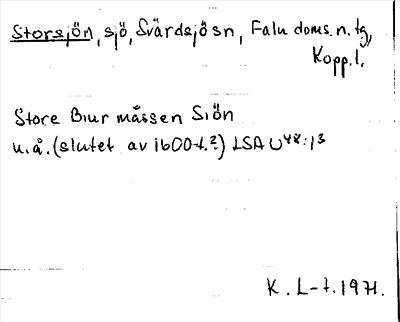 Storsjön, sjö, Svärdsjö sn, Falu doms. n. tg,
Kopp. l.
Store Biur måssen Siön
u. å. (slutet av 1600-t.?) LSA U48:13
K. L-t. 1971.